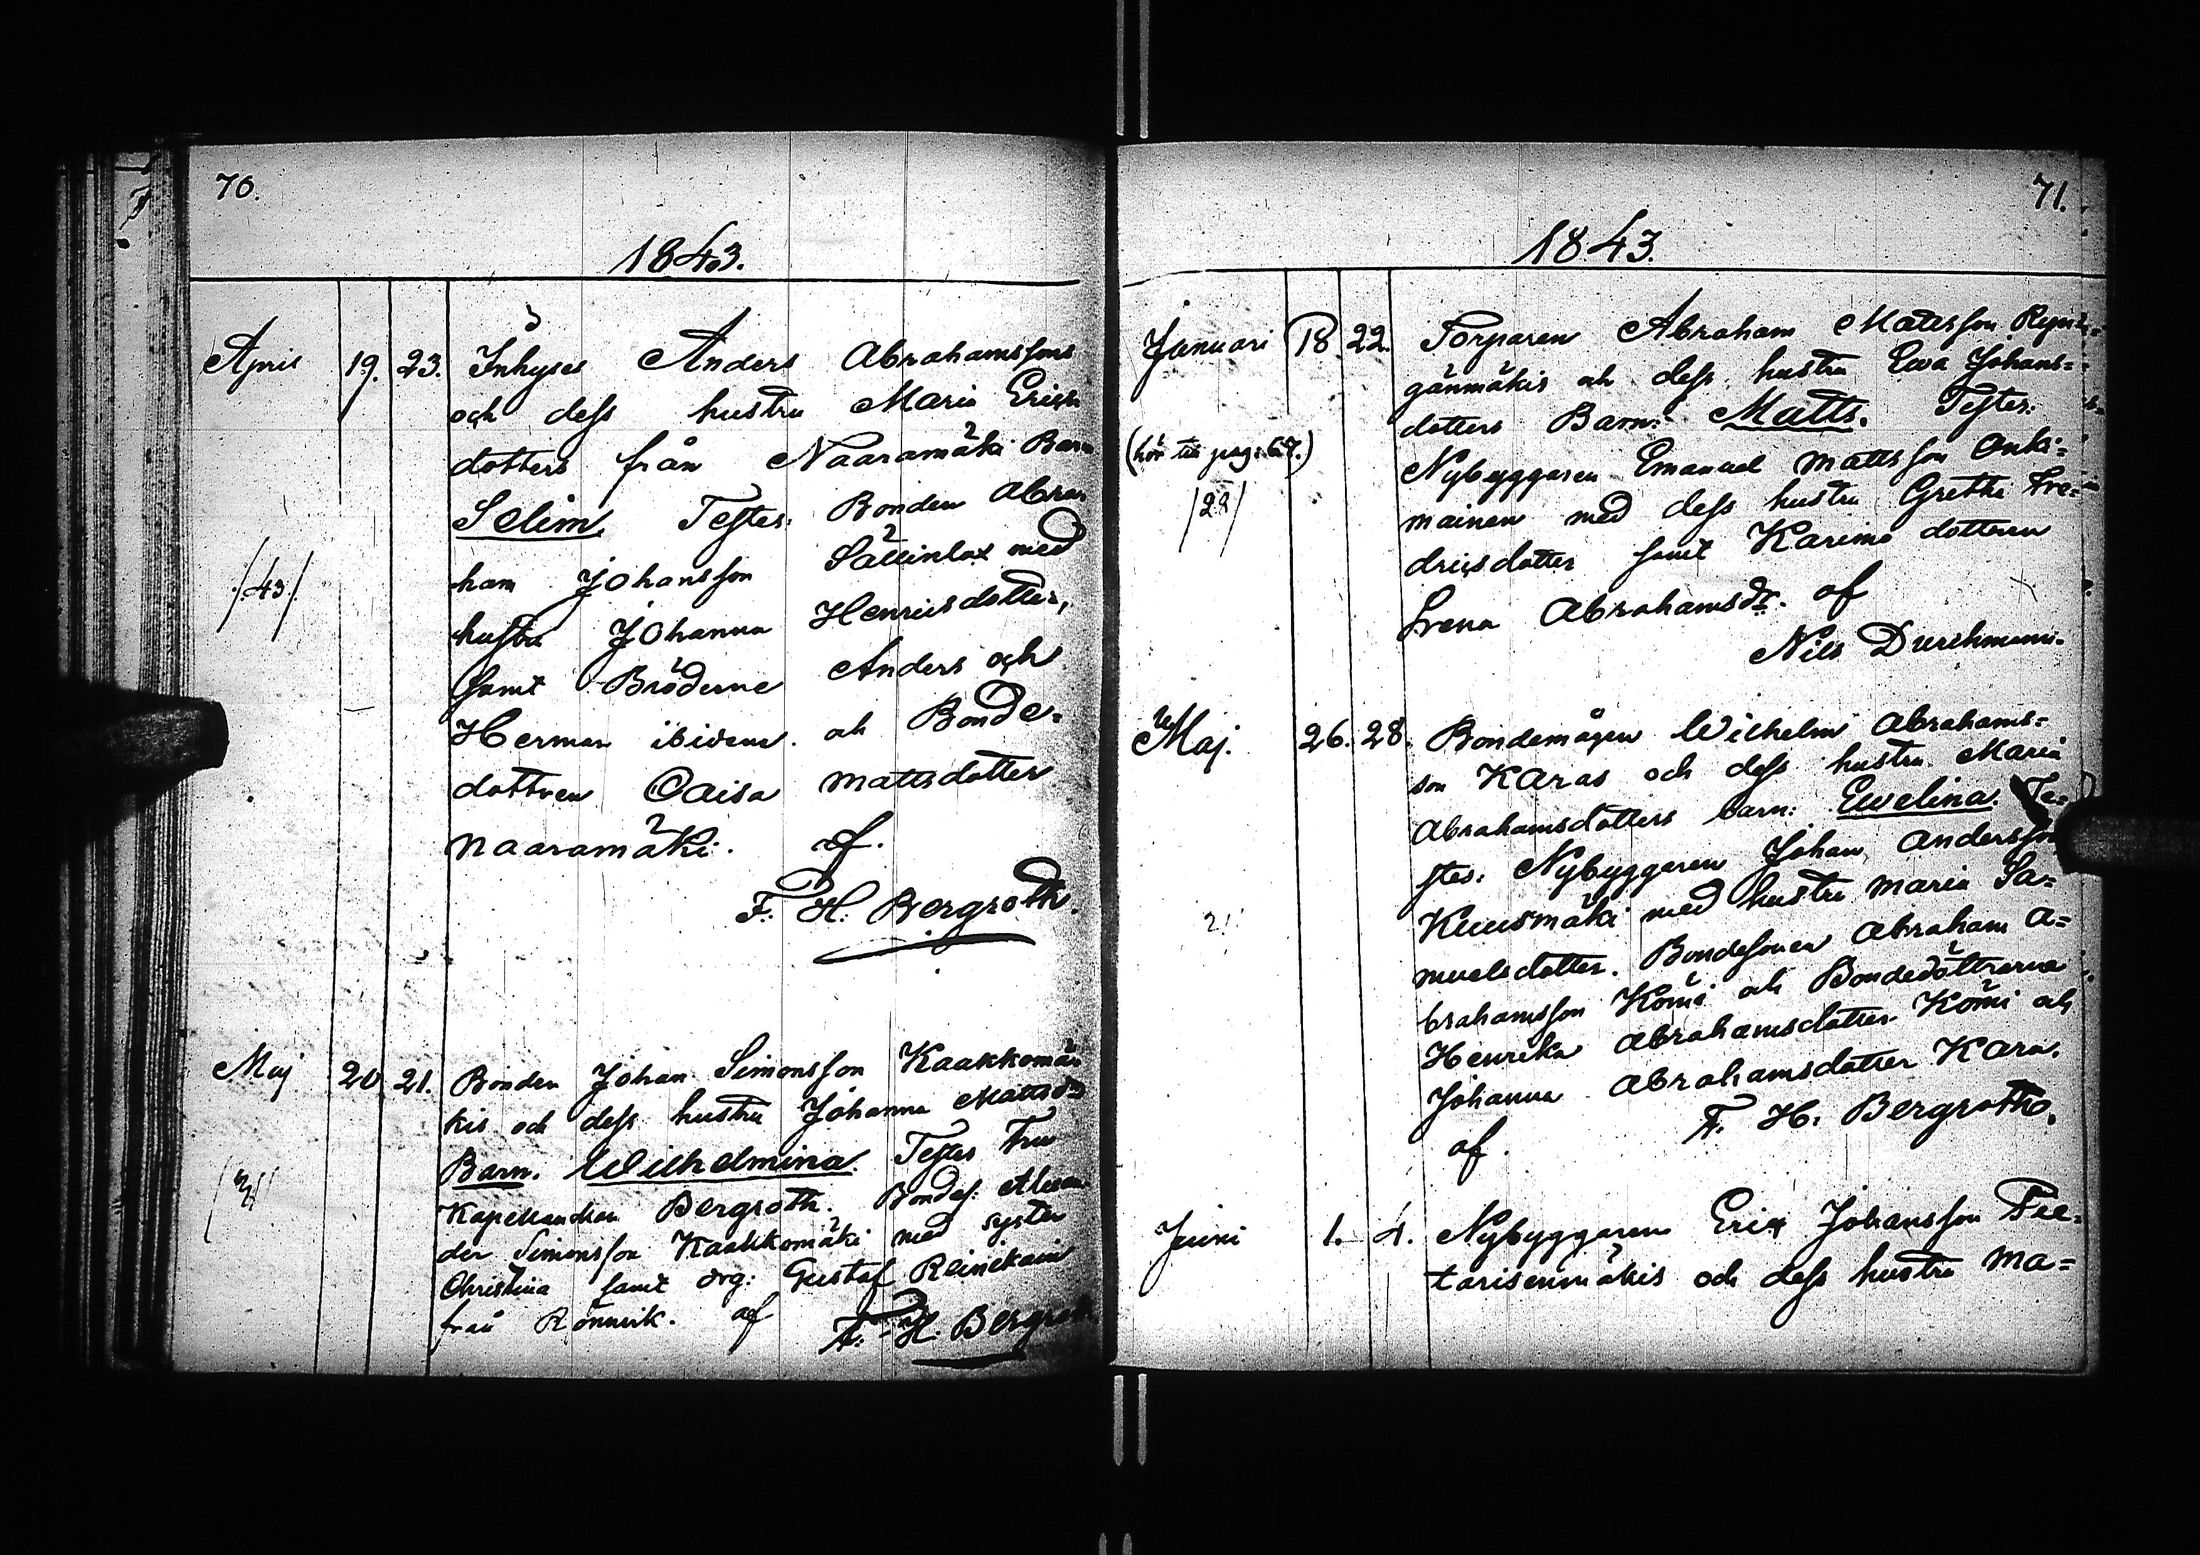 70.
1843.
April 19. 23. Inhyses Anders Abrahamssons
och dess hustru Maria Erics
dotters från Naaramäki Barn
Selim. Testes: Bonden Abra
ham Johansson Sällinlax med
/:43:/
hustru Johanna Henricsdotter,
samt Bröderne Anders och
Herman ibidem. och Bonde-
dottren Caisa Mattsdotter
Naaramäki. af.
F. H. Bergroth.
Maj 20 21. Bonden Johan Simonsson Kaakkomä
kis och dess hustru Johanna Mattsdr
Barn. Wilhelmina. Testes Fru
Kapellanskan Bergroth. Bondes: Alexan
der Simonsson Kaakkomäki med syster
Christina samt drg: Gustaf Reinikain
från Rönnvik. af F. H. Bergroth
71.
1843.
Januari 18 22. Torparen Abraham Mattsson
gänmäkis och dess hustru Ewa Johans-
dotters Barn: Matts. Testes:
(hör till pag: 67.)
Nybyggaren Emanuel Mattsson Onki-
/28/
mainen med dess hustru Gretha Fre-
dricsdotter samt Karimo dottren
Lrena Abrahamsdr. af
Nils Durchman.
Maj. 26. 28. Bondemågen Wilhelm Abrahams-
son Karas och dess hustru Maria
Abrahamsdotters barn: Ewelina. Te-
stes: Nybyggaren Johan Andersson
Kuusmäki med hustru Maria Sa-
muelsdotter. Bondesonen Abraham A-
brahamsson Kömi och Bondedöttrarne
Henrika Abrahamsdotter Kömi och
Johanna Abrahamsdotter Kara.
af. F. H. Bergroth.
Juni 1. 4. Nybyggaren Eric Johansson Pee-
tarisenmäkis och dess hustru Ma-